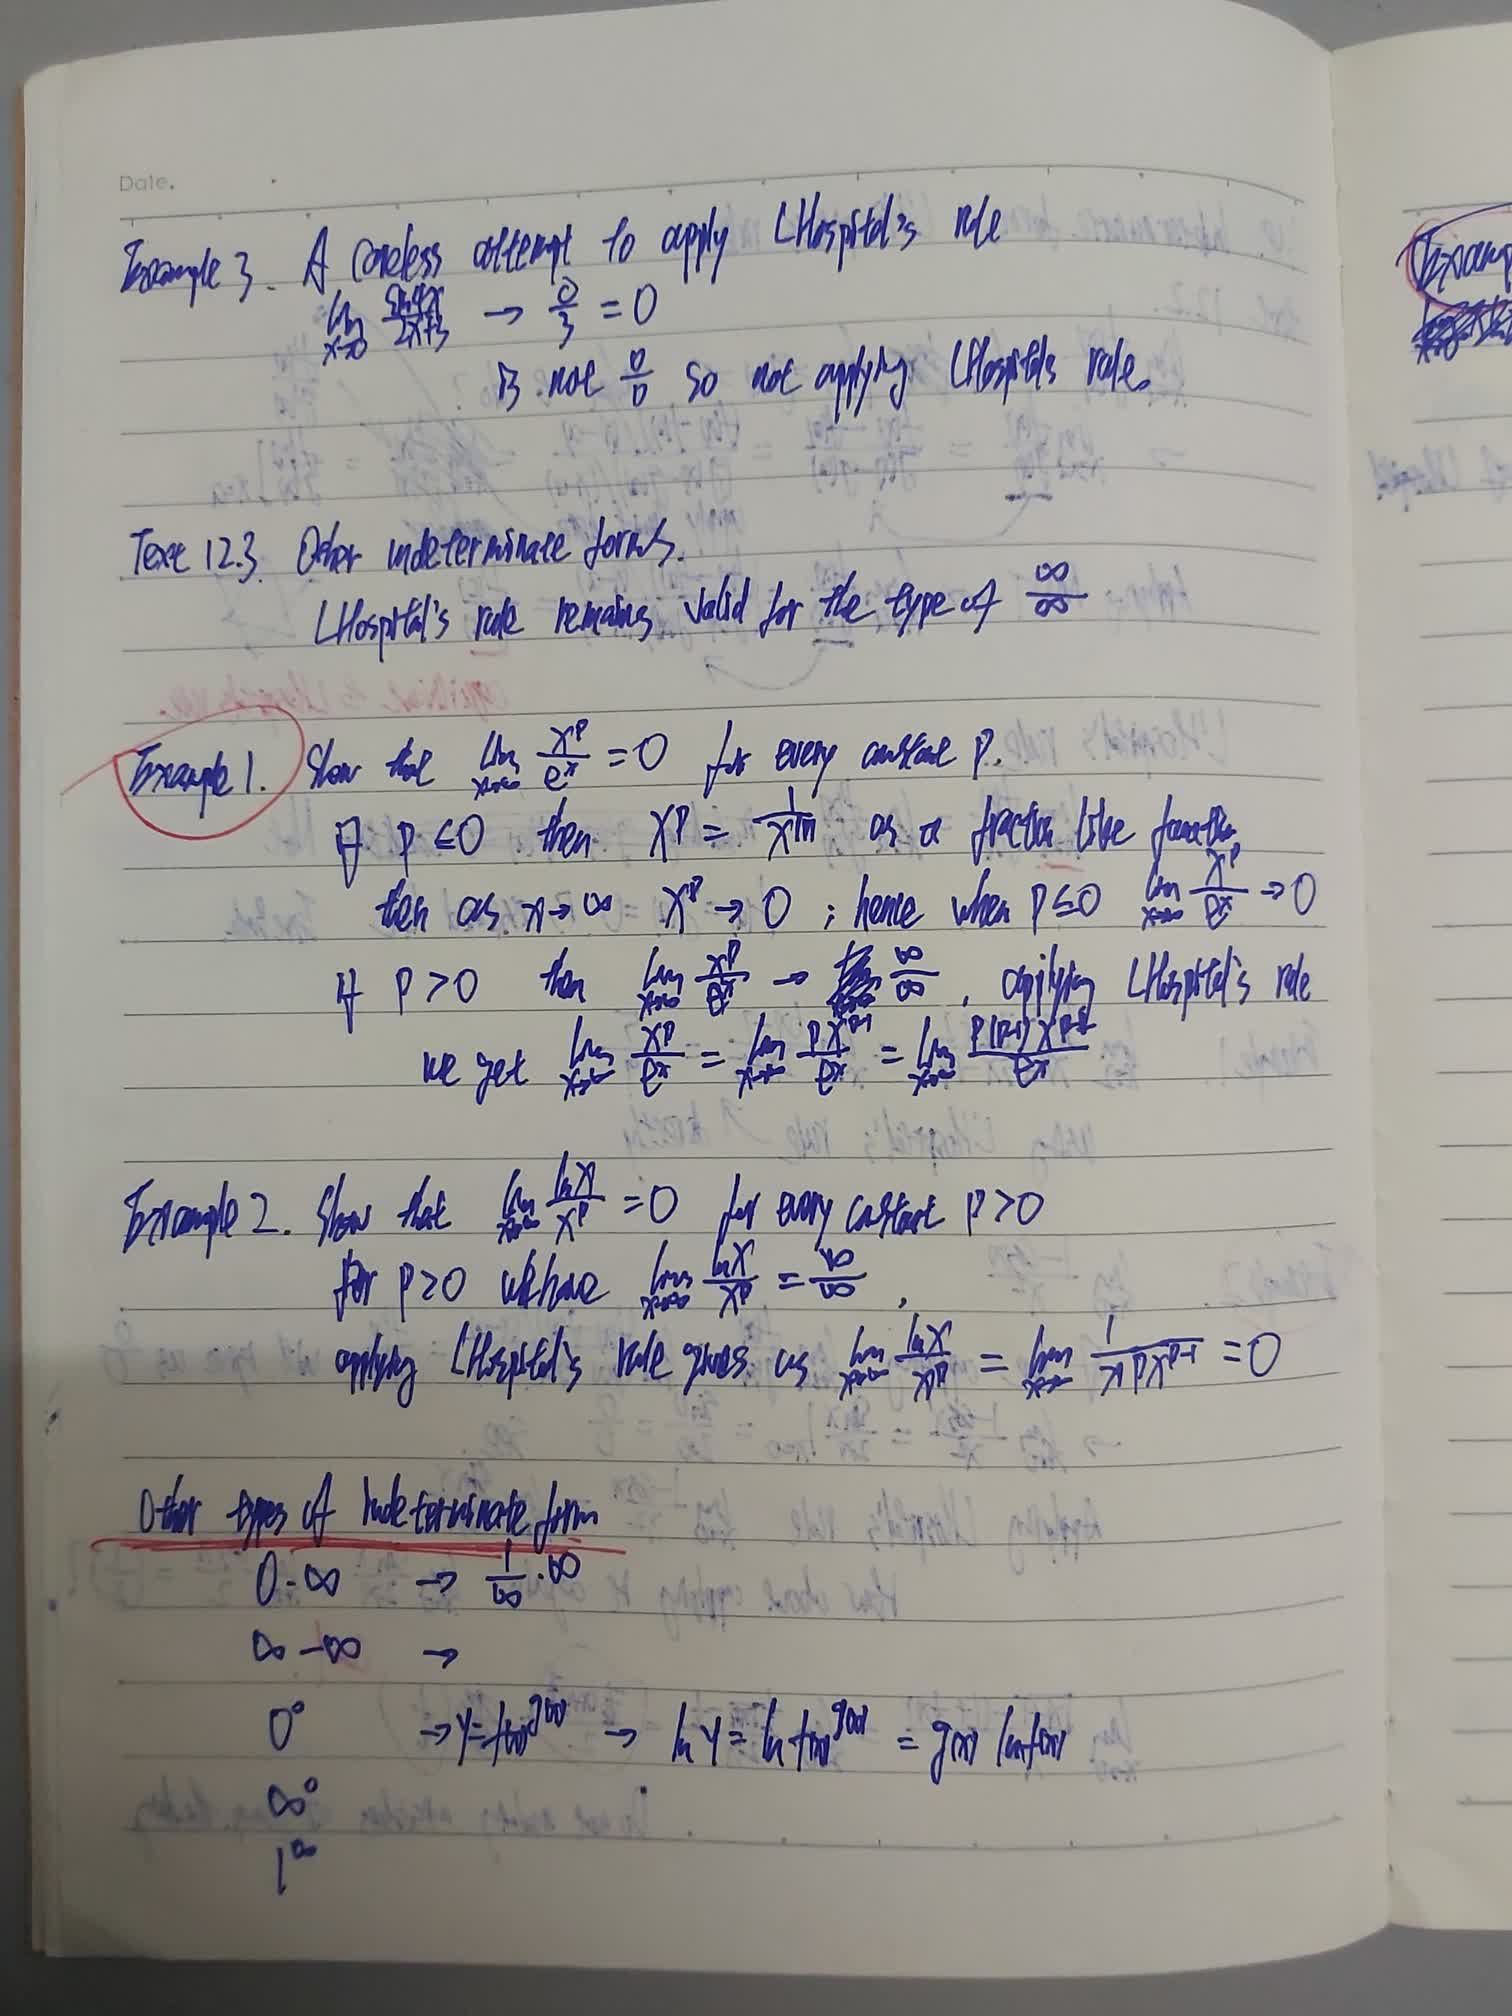 Date.
Example 3. A careless attempt to apply L'Hospital's rule
lim x→0 sin4x/2x+3 → 0/3 = 0
is not 0/0 so not applying L'Hospital's rule.
Text 12.3 Other indeterminate forms.
L'Hospital's rule remains valid for the type of ∞/∞
Example 1. Show that lim x→∞ x^p/e^x = 0 for every constant p.
if p ≤ 0 then x^p = 1/x^|p| as a fraction like function,
then as x→∞ x^p → 0 ; hence when p ≤ 0 lim x→∞ x^p/e^x → 0
if p > 0 then lim x→∞ x^p/e^x → ∞/∞, applying L'Hospital's rule
we get lim x→∞ x^p/e^x = lim x→∞ px^(p-1)/e^x = lim x→∞ p(p-1)x^(p-2)/e^x
Example 2. Show that lim x→∞ lnx/x^p = 0 for every constant p > 0
for p > 0 we have lim x→∞ lnx/x^p = ∞/∞,
applying L'Hospital's rule gives us lim x→∞ lnx/x^p = lim x→∞ 1/x p x^(p-1) = 0
Other types of Indeterminate form
0·∞ → 1/∞ · ∞
∞ - ∞ →
0^0 → y = f(x)^g(x) → ln y = ln f(x)^g(x) = g(x) ln f(x)
∞^0
1^∞
Exam